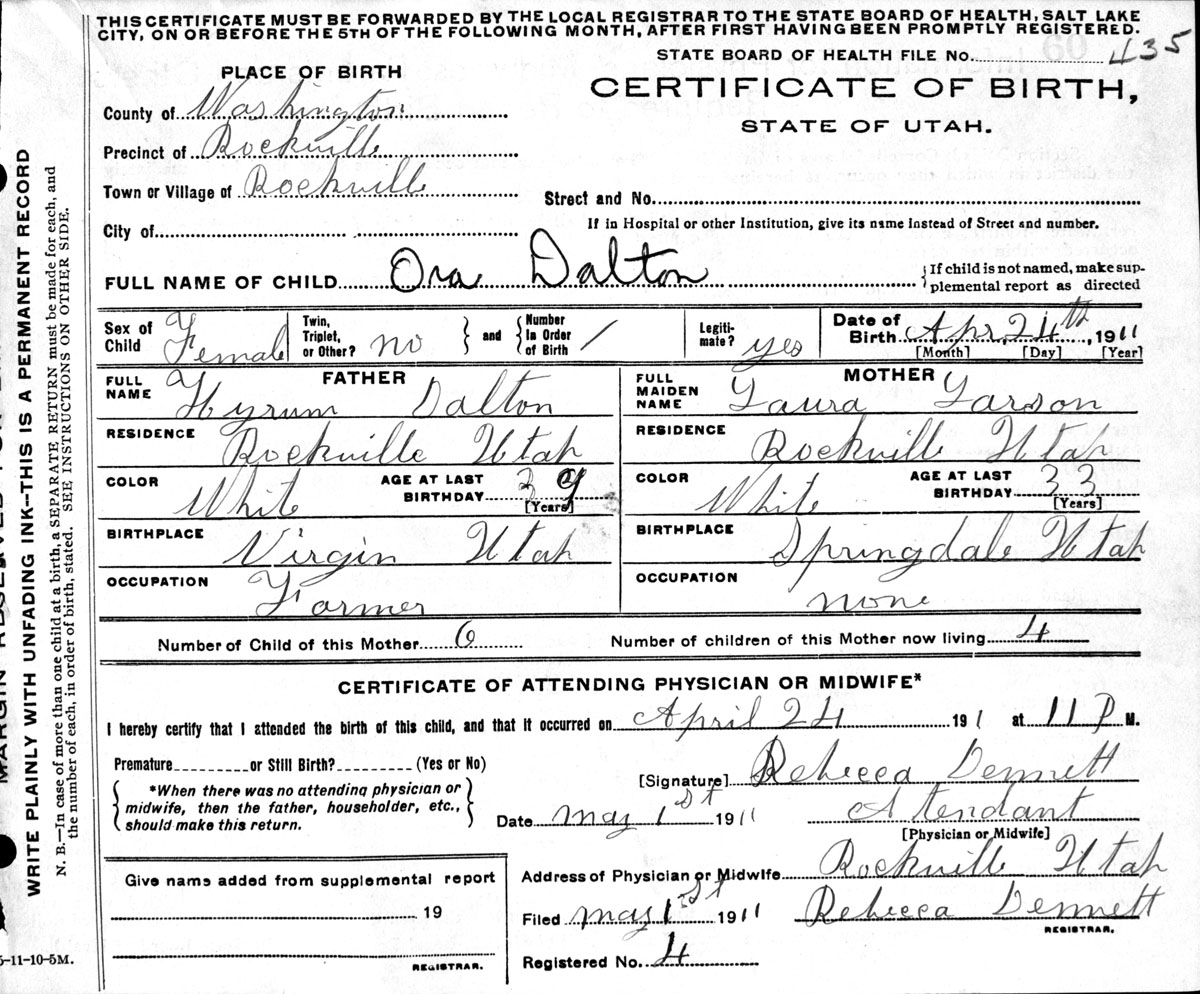 THIS CERTIFICATE MUST BE FORWARDED BY THE LOCAL REGISTRAR TO THE STATE BOARD OF HEALTH, SALT LAKE
CITY, ON OR BEFORE THE 5TH OF THE FOLLOWING MONTH, AFTER FIRST HAVING BEEN PROMPTLY REGISTERED.
STATE BOARD OF HEALTH FILE No. 435
PLACE OF BIRTH
CERTIFICATE OF BIRTH,
STATE OF UTAH.
County of Washington
Precinct of Rockville
Town or Village of Rockville
Street and No.
City of
If in Hospital or other Institution, give its name instead of Street and number.
FULL NAME OF CHILD Ora Dalton
If child is not named, make sup-
plemental report as directed
Sex of Child Female
Twin, Triplet, or Other? no
and
Number In Order of Birth /
Legiti- mate? yes
Date of Birth Apr. 24th, 1911
[Month] [Day] [Year]
FATHER
FULL NAME Hyrum Dalton
MOTHER
FULL MAIDEN NAME Laura Larson
RESIDENCE Rockville Utah
RESIDENCE Rockville Utah
COLOR White
AGE AT LAST BIRTHDAY 39
[Years]
COLOR White
AGE AT LAST BIRTHDAY 33
[Years]
BIRTHPLACE Virgin Utah
BIRTHPLACE Springdale Utah
OCCUPATION Farmer
OCCUPATION none
Number of Child of this Mother 6
Number of children of this Mother now living 4
CERTIFICATE OF ATTENDING PHYSICIAN OR MIDWIFE*
I hereby certify that I attended the birth of this child, and that it occurred on April 24 1911 at 11 P M.
Premature or Still Birth? (Yes or No)
*When there was no attending physician or
midwife, then the father, householder, etc.,
should make this return.
[Signature] Rebecca Dennett
Date May 1st 1911
Attendant
[Physician or Midwife]
Give name added from supplemental report
19
REGISTRAR.
Address of Physician or Midwife Rockville Utah
Filed May 1st 1911
Rebecca Dennett
REGISTRAR.
Registered No. 4
5-11-10-5M.
WRITE PLAINLY WITH UNFADING INK—THIS IS A PERMANENT RECORD
N. B.—In case of more than one child at a birth, a SEPARATE RETURN must be made for each, and
the number of each, in order of birth, stated. SEE INSTRUCTIONS ON OTHER SIDE.